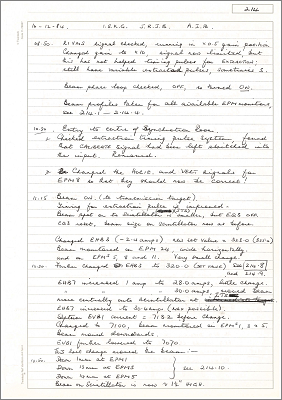 214
10-12-84. I.S.R.G. J.R.I.B. A.I.B.
09.50. R1VM3 signal checked, running in x0.5 gain position
Changed gain to x10, signal now limited, but
this has not helped timing pulses for EXTRACTION;
still have variable extracted pulses, sometimes 3.
Beam phase loop checked, OFF, so turned ON.
Beam profiles taken for all available EPM monitors,
see 214.1 — 214.4.
10.30. Entry to centre of Synchrotron Room.
Checked extraction timing pulse system, found
that CALIBRATE signal had been left attached into
the input. Removed.
Changed the HORIZ. and VERT signals for
EPM3 so that they should now be correct!
11.15 Beam ON. (to transmission target)
Timing for extraction pulse is improved.
Beam spot on scintillator is smaller, but EQ3 OFF.
EQ3 reset, beam size on scintillator now as before.
Changed EHB3 (-2.0 amps) new set value =
Beam monitored on EPM 24, wide horizontally,
and on EPM's 5, 8 and 11. Very small change.
12.00 Further changed EHB3 to 320.0 (set value) see 214.8
and 214.9.
EHB7 increased 1 amp to 28.0 amps, little change.
" " " 30.0 amps, moved beam
more centrally onto scintillator at
EHB7 increased to 30 amps (not possible).
Septum EVB1 current = 7132 before change.
Changed to 7100, beam monitored on EPM's 1, 3 + 5.
Beam moved downwards.
EVB1 further lowered to 7070
This last change moved the beam :—
12.50. Down 1mm at EPM1
Down 13mm at EPM3 see 214.10.
Down 4mm at EPM5
Beam on Scintillator is now ≈ 1½" HIGH.